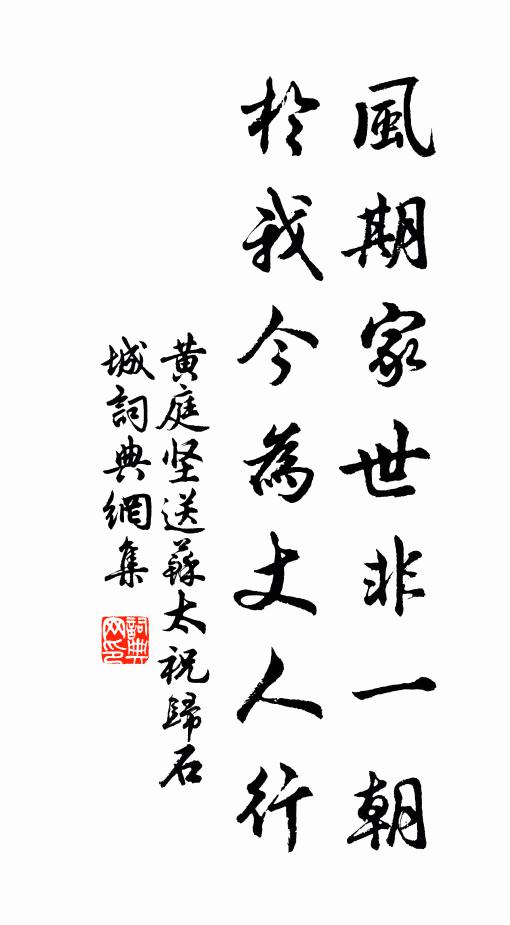 風期家世非一朝
於我今為丈人行
黄庭坚送蘇太祝歸石
城詞典網集
詞典
网印